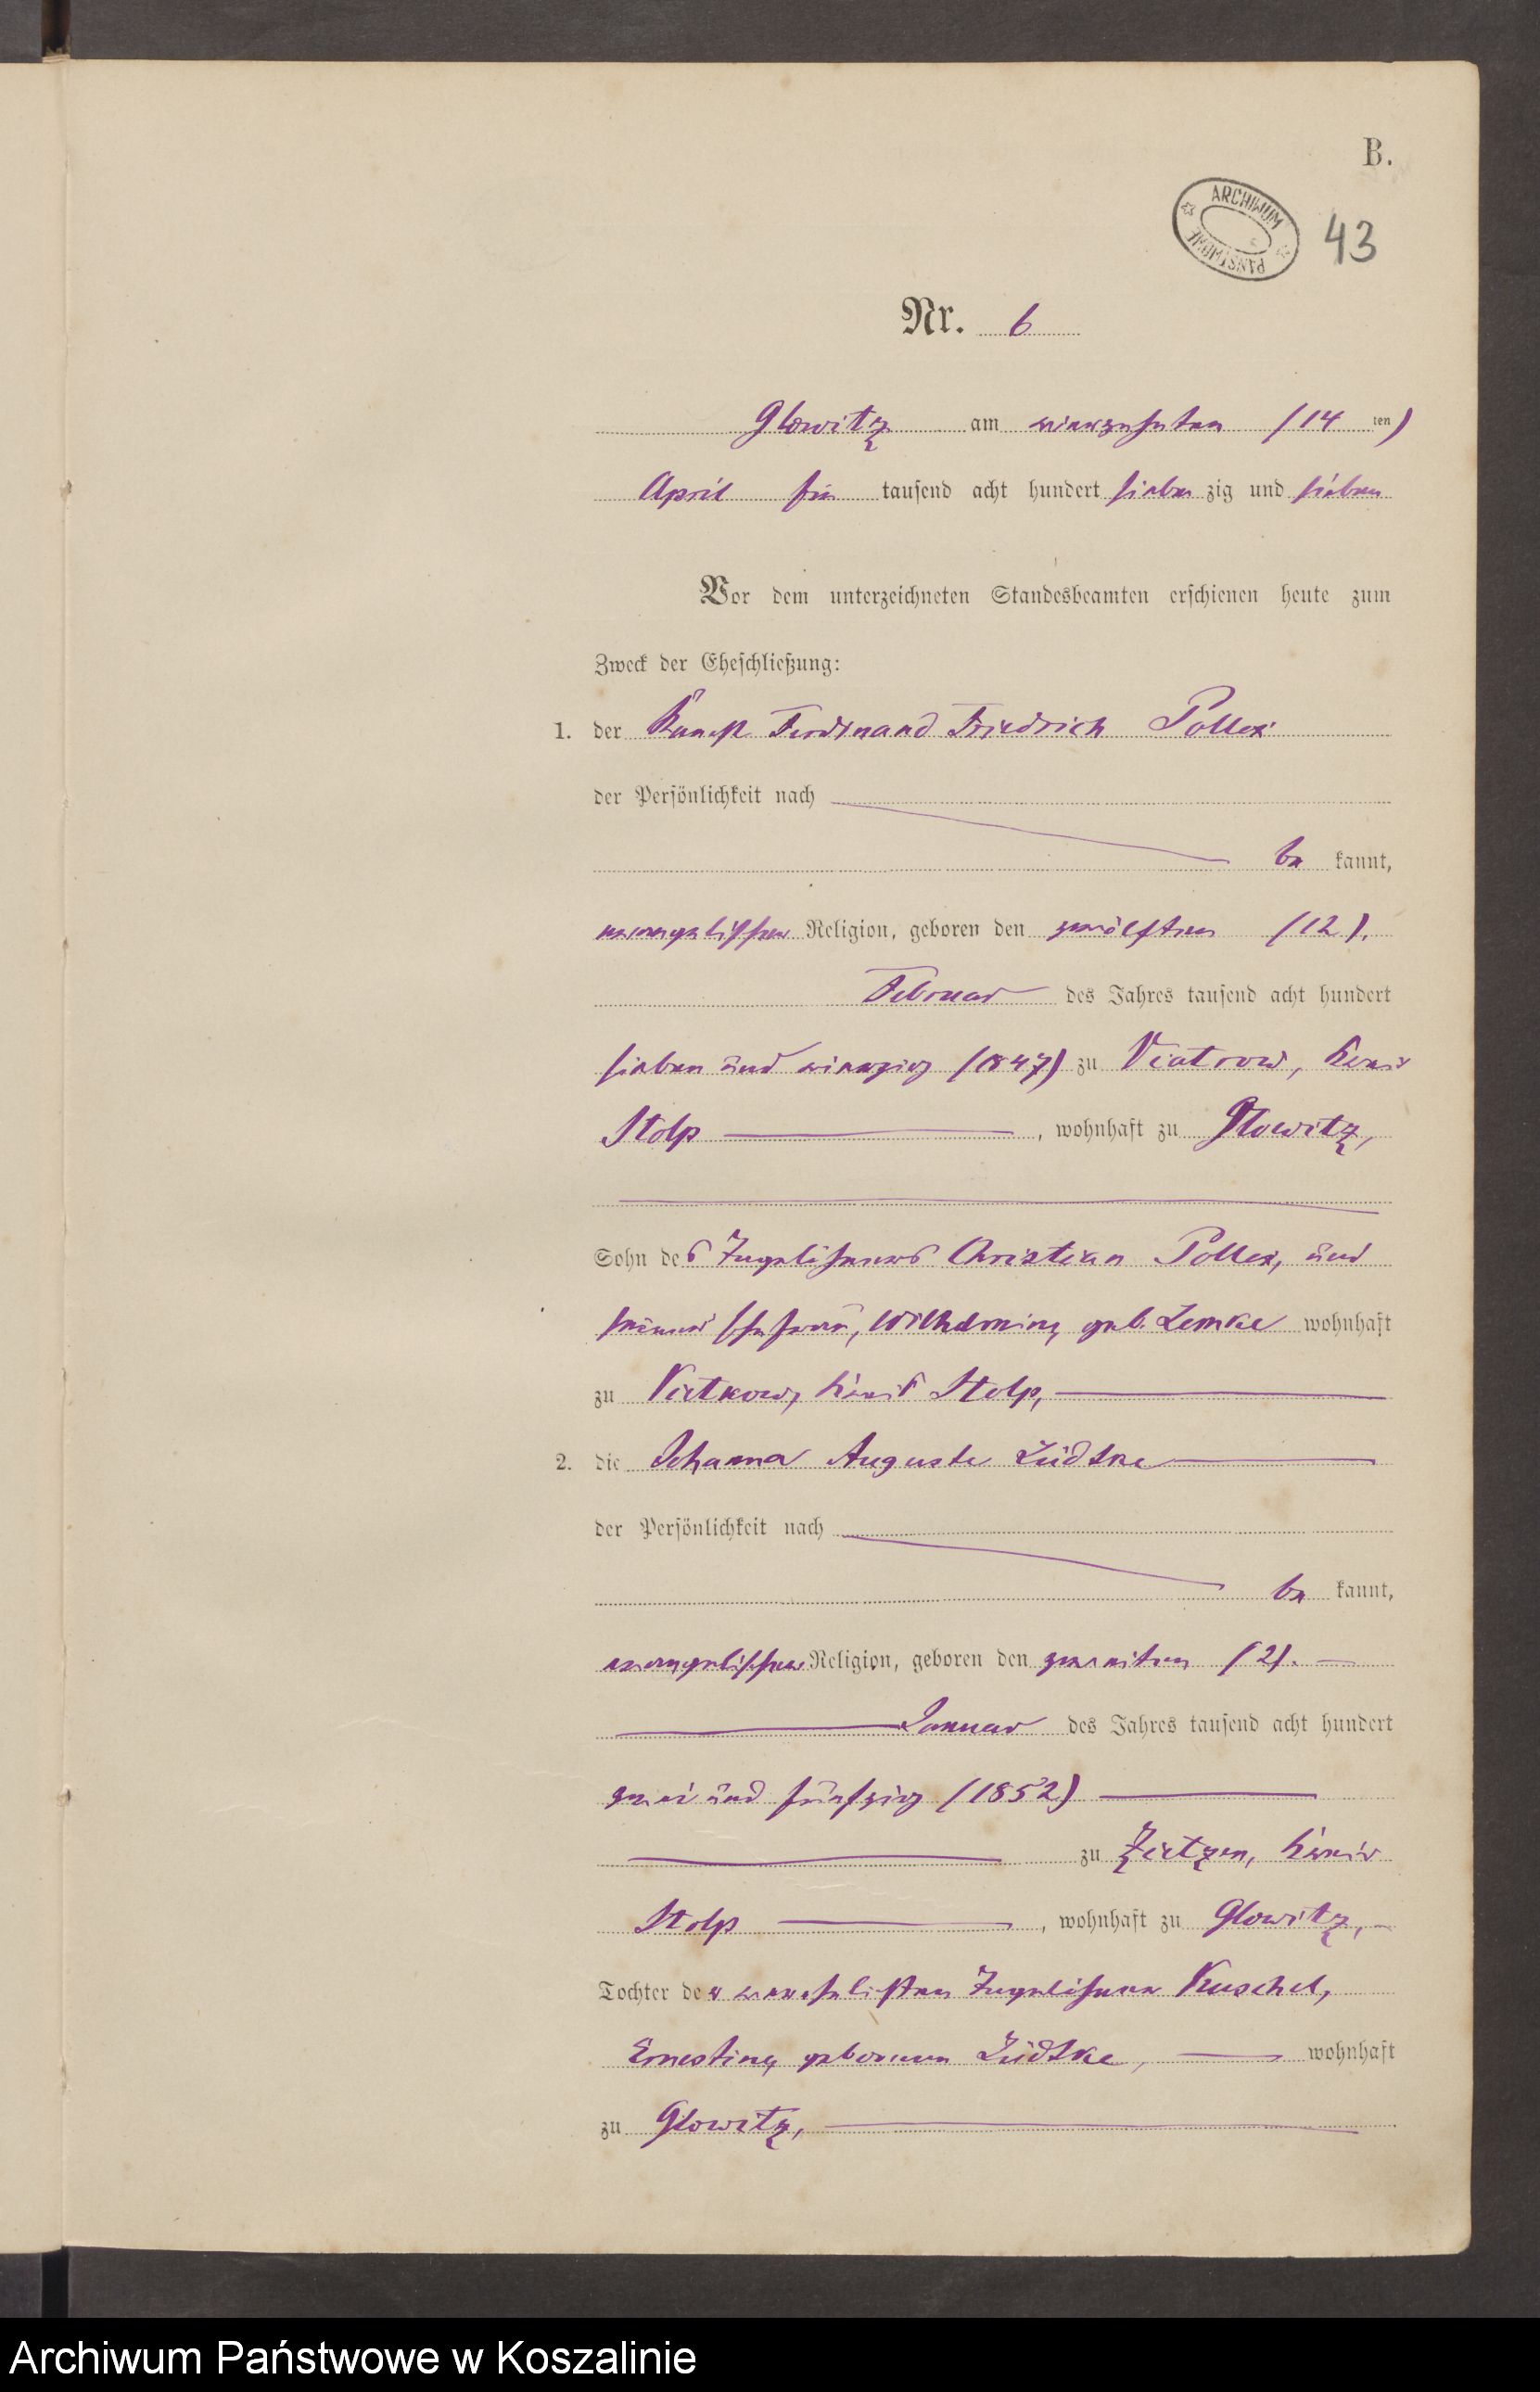 B.
ARCHIWUM PAŃSTWOWE
43
Nr. 6
Glowitz am vierzehnten (14 ten)
April ein tausend acht hundert sieben zig und sieben
Vor dem unterzeichneten Standesbeamten erschienen heute zum
Zweck der Eheschließung:
1. der Knecht Ferdinand Friedrich Pollex
der Persönlichkeit nach
be kannt,
evangelischer Religion, geboren den zwölften (12).
Februar des Jahres tausend acht hundert
sieben und vierzig (1847) zu Viatrow, Kreis
Stolp, wohnhaft zu Glowitz,
Sohn des Tagelöhners Christian Pollex, und
seiner Ehefrau, Wilhelmine, geb. Lemke wohnhaft
zu Vietkow, Kreis Stolp,
2. die Johanna Auguste Lüdtke
der Persönlichkeit nach
be kannt,
evangelischer Religion, geboren den zweiten (2).
Januar des Jahres tausend acht hundert
zwei und fünfzig (1852)
zu Zietzen, Kreis
Stolp, wohnhaft zu Glowitz,
Tochter der verehelichten Tagelöhner Kuschel,
Ernestine, geborenen Lüdtke, wohnhaft
zu Glowitz,
Archiwum Państwowe w Koszalinie